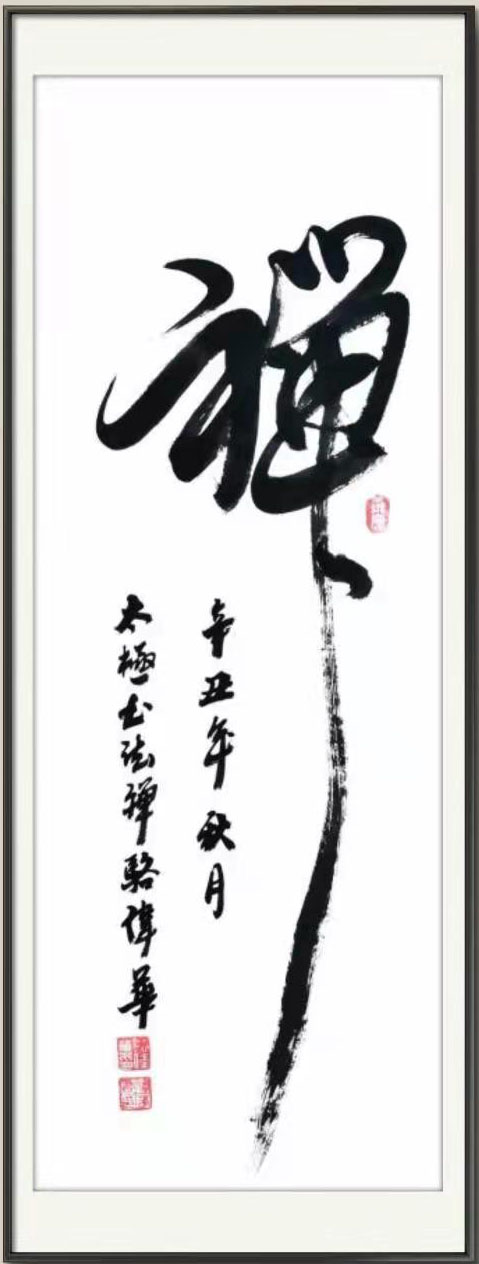 禪
辛丑年秋月
太極书法禪駱偉華